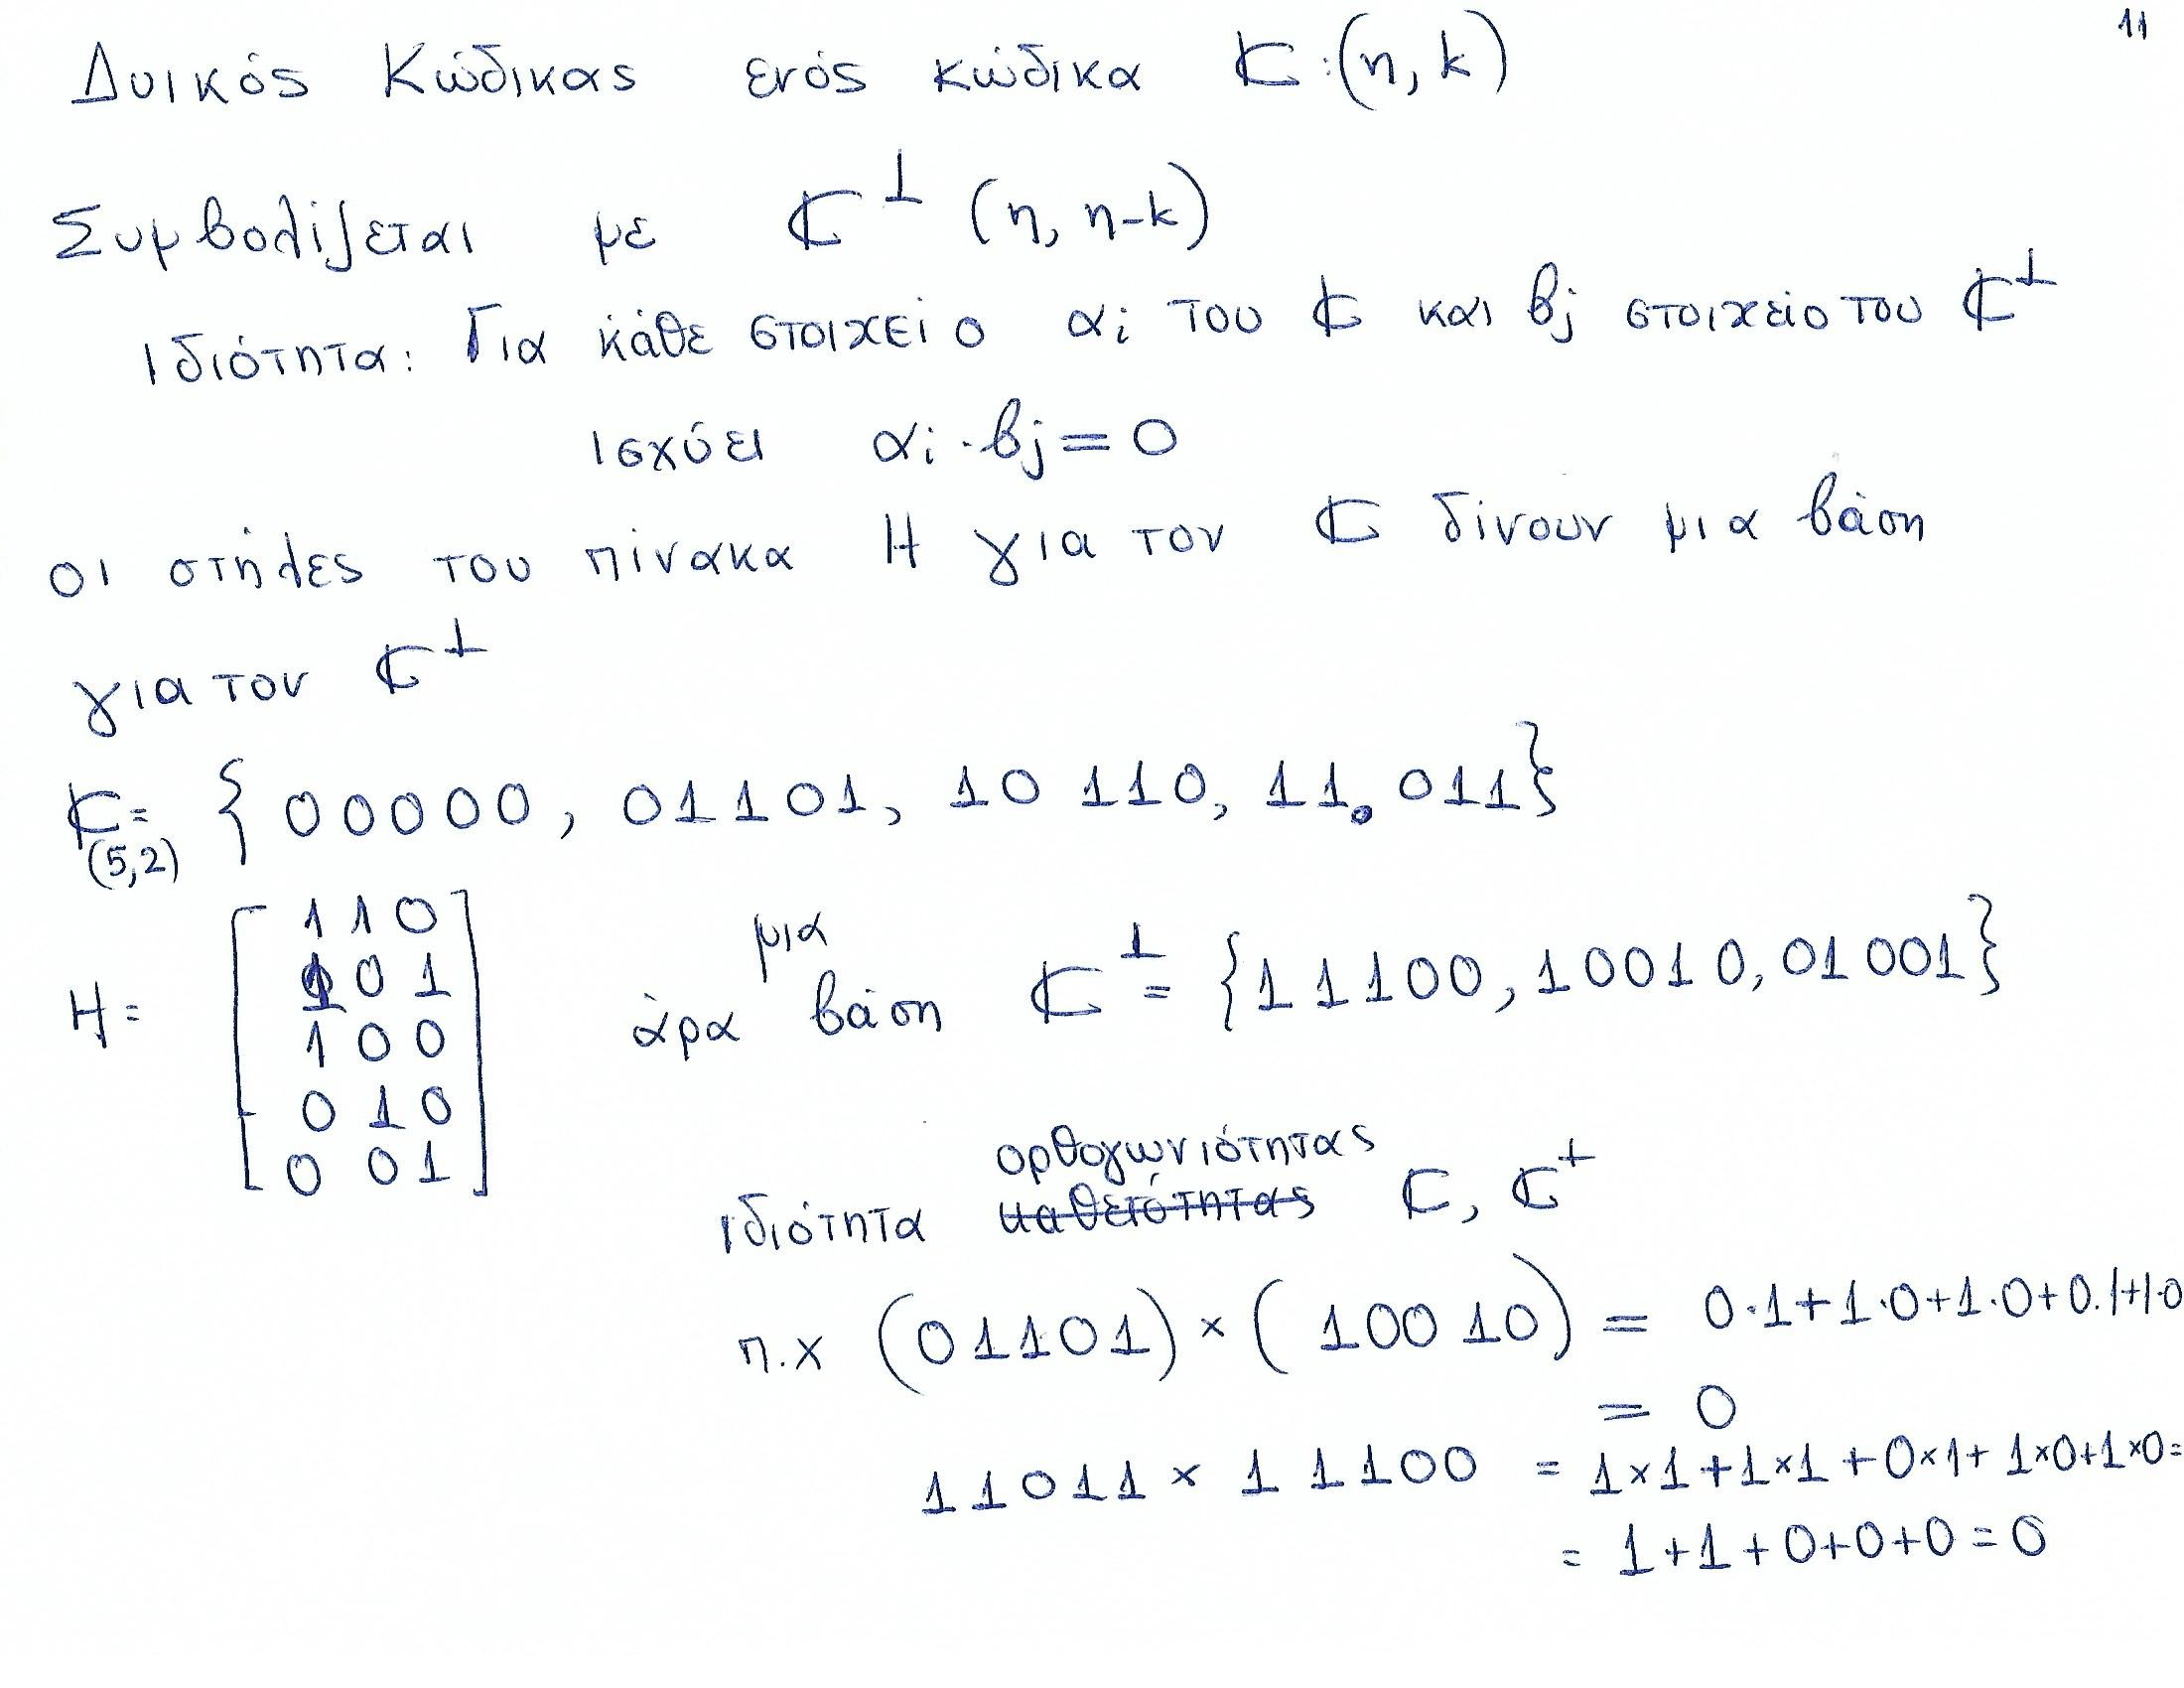 11
Δυικός Κώδικας ενός κώδικα C:(n, k)
Συμβολίζεται με C⊥ (n, n-k)
Ιδιότητα: Για κάθε στοιχείο αi του C και βj στοιχείο του C⊥
ισχύει αi·βj=0
οι στήλες του πίνακα H για τον C δίνουν μια βάση
για τον C⊥
C= { 00000, 01101, 10 110, 11 011}
(5,2)
1 1 0
1 0 1
H= 1 0 0
0 1 0
0 0 1
μια
άρα βάση C⊥ = {11100, 10010, 01001}
ορθογωνιότητας
ιδιότητα καθετότητας C, C⊥
π.χ (01101) × (10010) = 0·1+1·0+1·0+0·1+1·0
= 0
11011 × 11100 = 1×1+1×1+0×1+1×0+1×0=
= 1+1+0+0+0=0